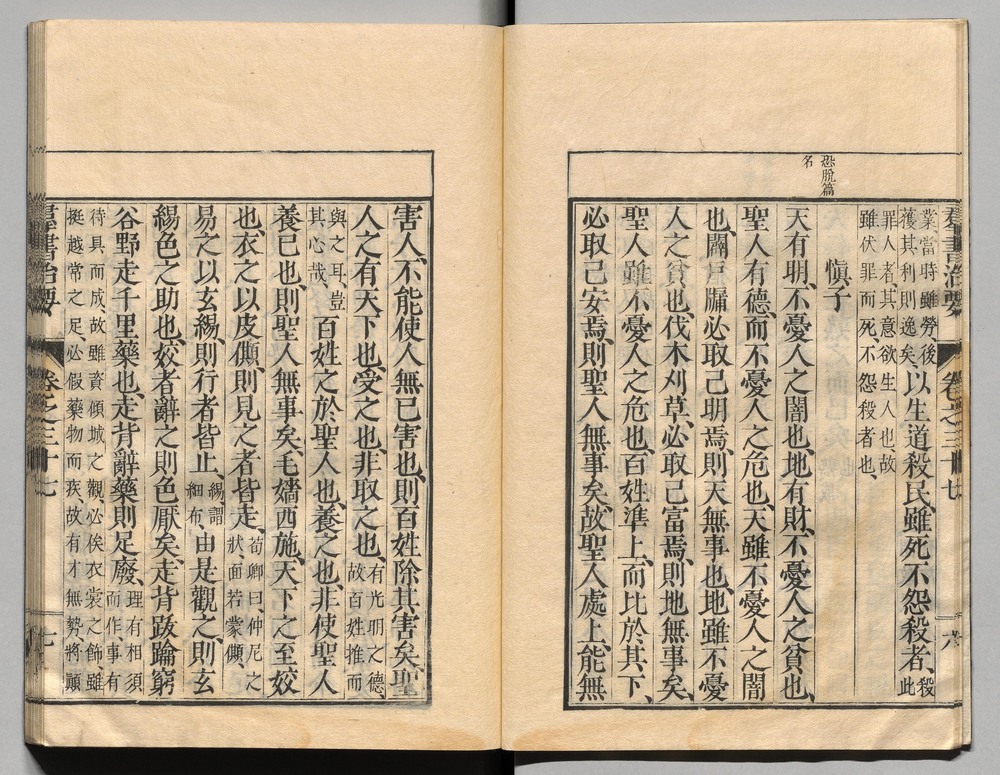 羣書治要 卷之三十七 六
業當時雖勞後
獲其利則逸矣以生道殺民雖死不怨殺者殺此
罪人者其意欲生人也故
雖伏罪而死不怨殺者也
慎子
恐脫篇
名
天有明不憂人之闇也地有財不憂人之貧也
聖人有德而不憂人之危也天雖不憂人之闇
也闢戶牖必取己明焉則天無事也地雖不憂
人之貧也伐木刈草必取己富焉則地無事矣
聖人雖不憂人之危也百姓準上而比於其下
必取己安焉則聖人無事矣故聖人處上能無
害人不能使人無己害也則百姓除其害矣聖
人之有天下也受之也非取之也有光明之德故百姓推而
與之耳豈其心哉百姓之於聖人也養之也非使聖人
養己也則聖人無事矣毛嬙西施天下之至姣
也衣之以皮倛則見之者皆走荀卿曰仲尼之狀面若蒙倛
易之以玄緆則行者皆止緆謂細布由是觀之則玄
緆色之助也姣者辭之則色厭矣走背跋踚窮
谷野走千里藥也走背辭藥則足廢理有相須而作事有
待具而成故雖資傾城之觀必俟衣裳之飾雖
挺越常之足必假藥物而疾故有才無勢將顛
羣書治要 卷之三十七 七